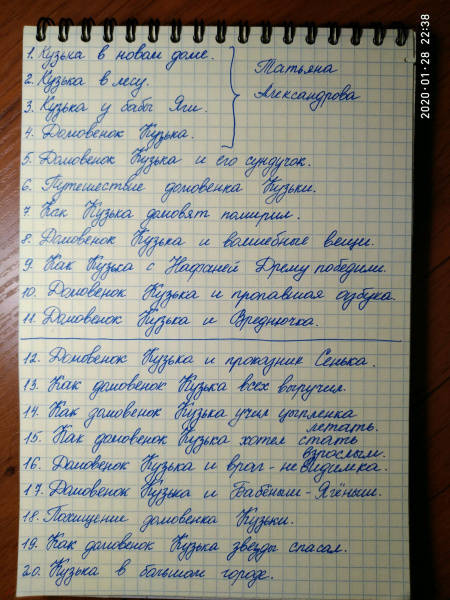 1. Кузька в новом доме.
2. Кузька в лесу.
3. Кузька у бабы Яги.
4. Домовенок Кузька.
Татьяна
Александрова
5. Домовенок Кузька и его сундучок.
6. Путешествие домовенка Кузьки.
7. Как Кузька домовят помирил.
8. Домовенок Кузька и волшебные вещи.
9. Как Кузька с Нафаней Дрему победили.
10. Домовенок Кузька и пропавшая азбука.
11. Домовенок Кузька и Вреднючка.
12. Домовенок Кузька и проказник Сенька.
13. Как домовенок Кузька всех выручил.
14. Как домовенок Кузька учил цыпленка
летать.
15. Как домовенок Кузька хотел стать
взрослым.
16. Домовенок Кузька и враг-невидимка.
17. Домовенок Кузька и Бабёныш-Ягёныш.
18. Похищение домовенка Кузьки.
19. Как домовенок Кузька звезды спасал.
20. Кузька в большом городе.
2020-01-28 22:38